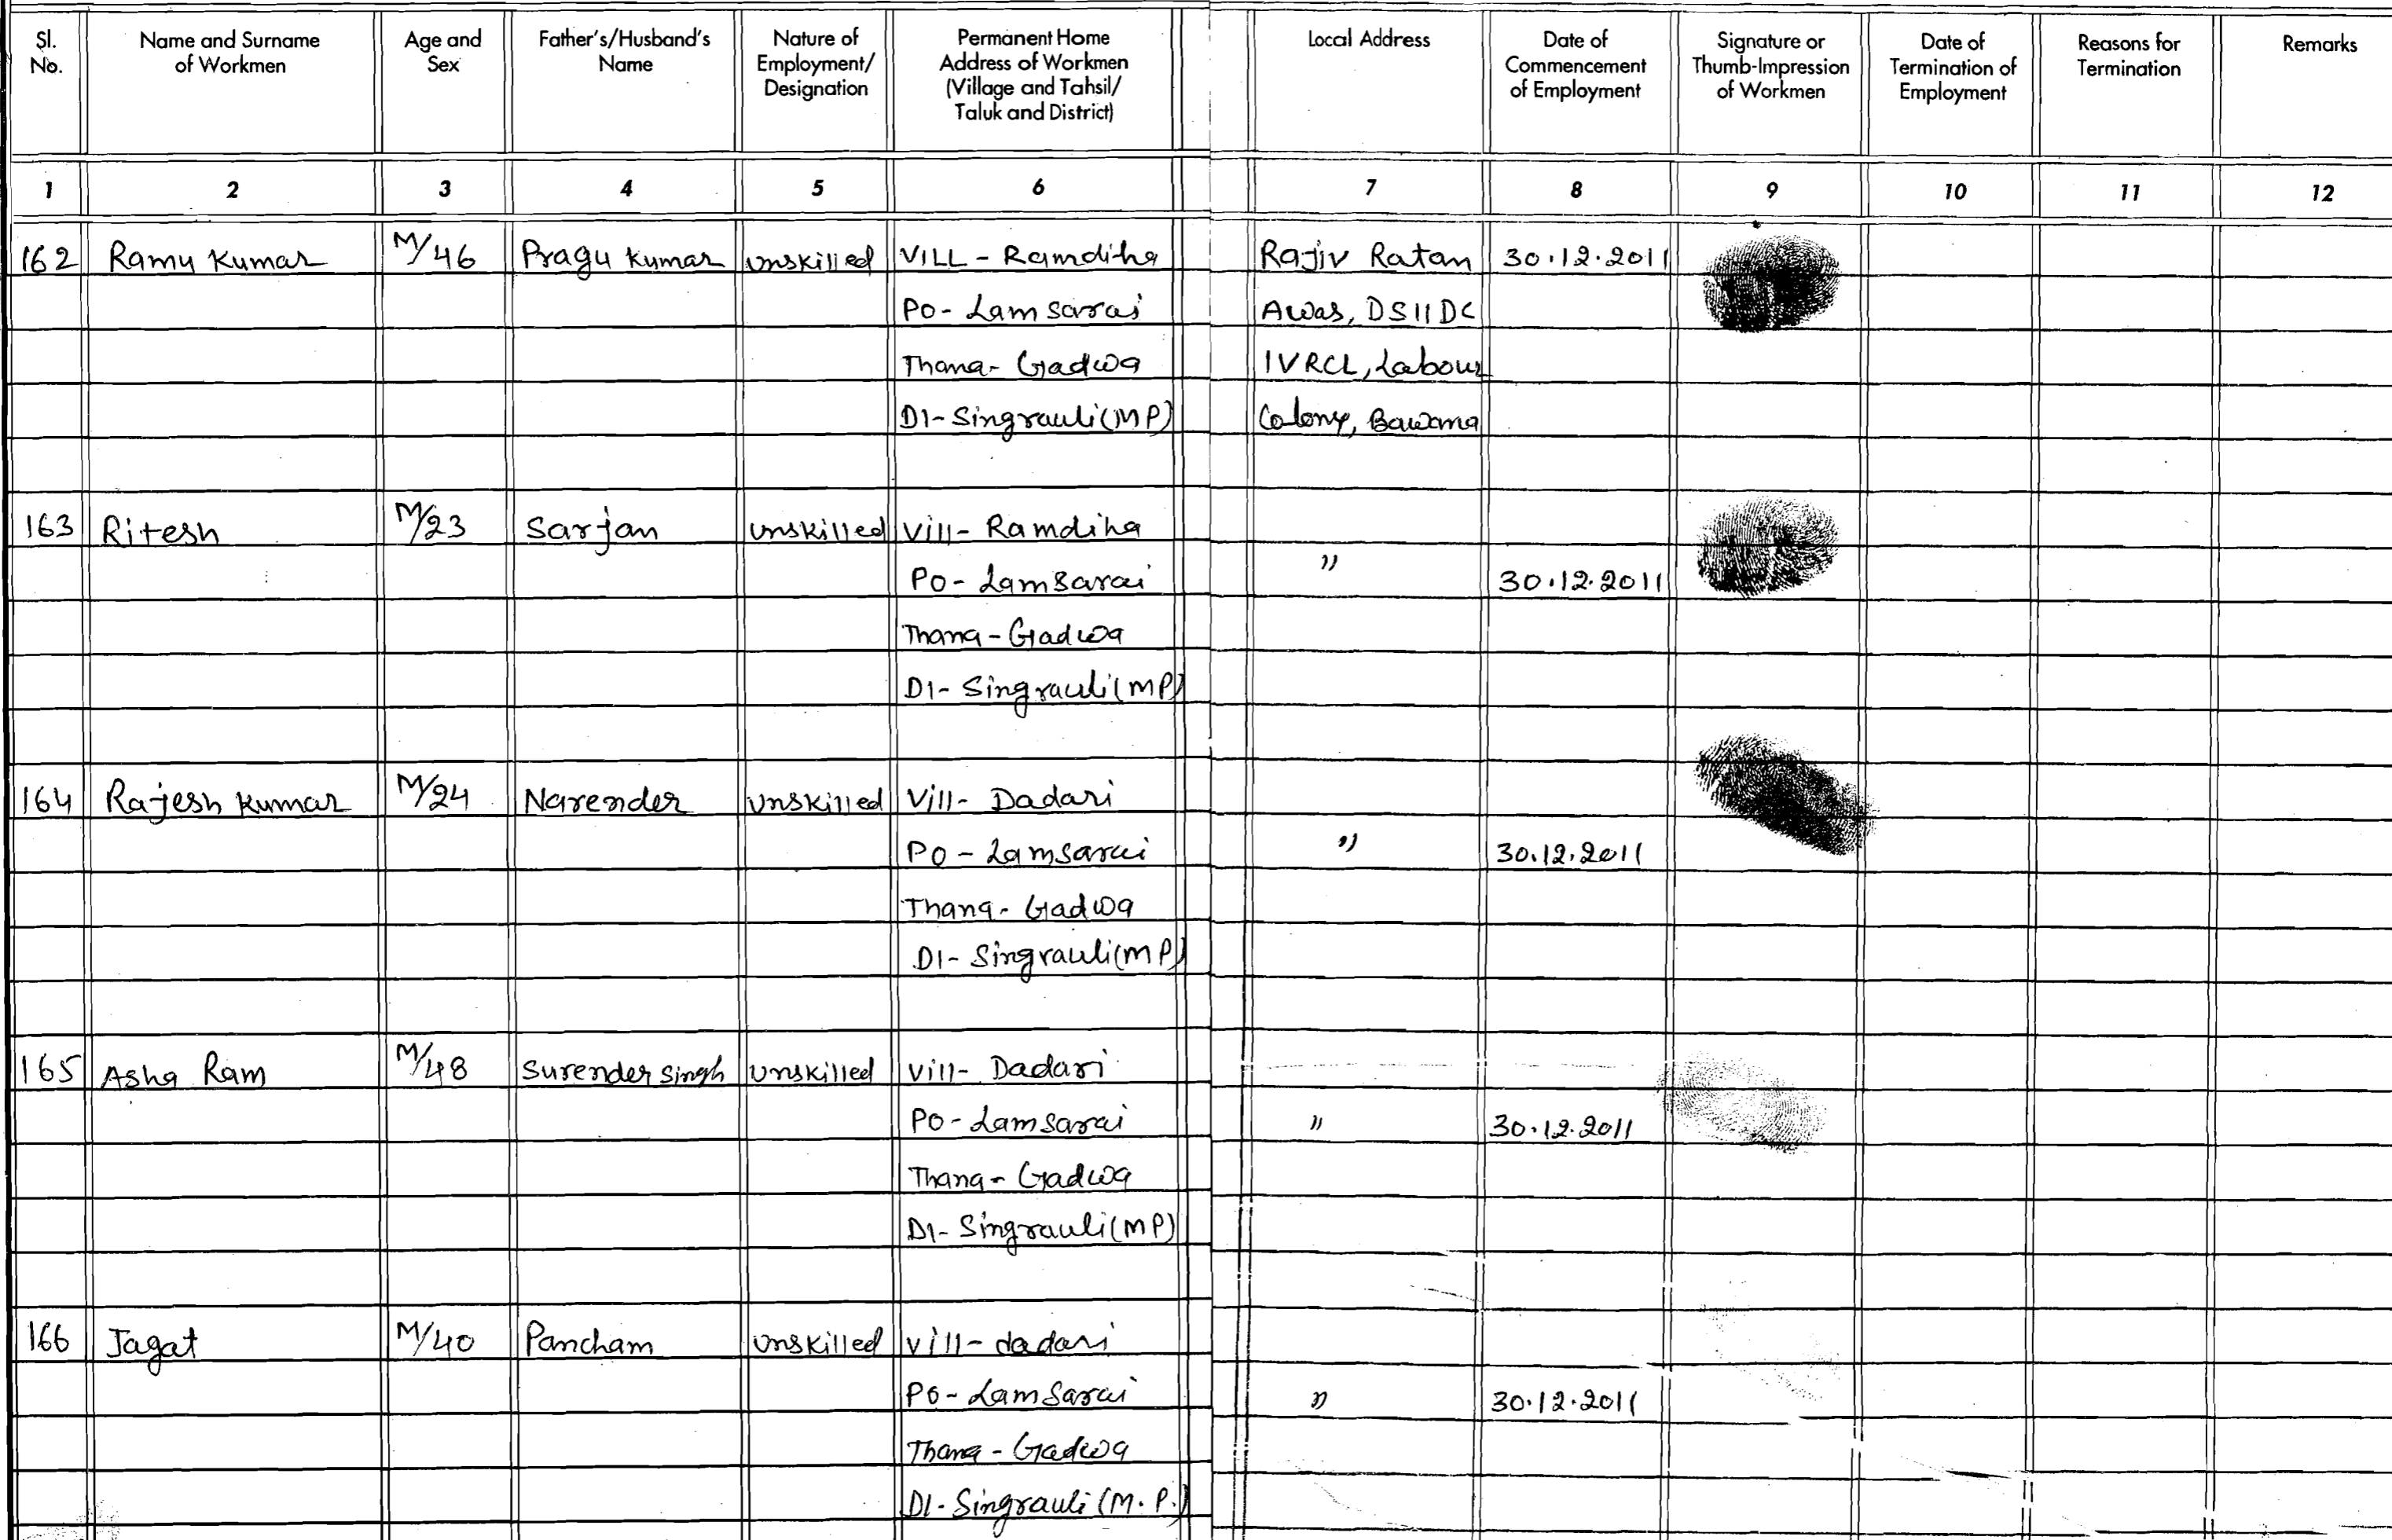 Sl. No. Name and Surname of Workmen Age and Sex Father's/Husband's Name Nature of Employment/ Designation Permanent Home Address of Workmen (Village and Tahsil/ Taluk and District) Local Address Date of Commencement of Employment Signature or Thumb-Impression of Workmen Date of Termination of Employment Reasons for Termination Remarks
1 2 3 4 5 6 7 8 9 10 11 12
162 Ramu Kumar M/46 Pragu Kumar Unskilled VILL - Ramdiha Rajiv Ratan 30.12.2011
PO - Lamsarai Awas, DSIIDC
Thana - Gadwa IVRCL, Labour
DI - Singrauli (MP) Colony, Bawana
163 Ritesh M/23 Sarjan Unskilled Vill - Ramdiha
PO - Lamsarai " 30.12.2011
Thana - Gadwa
DI - Singrauli (MP)
164 Rajesh Kumar M/24 Narender Unskilled Vill - Dadari
PO - Lamsarai " 30.12.2011
Thana - Gadwa
DI - Singrauli (MP)
165 Asha Ram M/48 Surender Singh Unskilled Vill - Dadari
PO - Lamsarai " 30.12.2011
Thana - Gadwa
DI - Singrauli (MP)
166 Jagat M/40 Pancham Unskilled Vill - dadari
PO - Lamsarai " 30.12.2011
Thana - Gadwa
DI - Singrauli (M.P.)